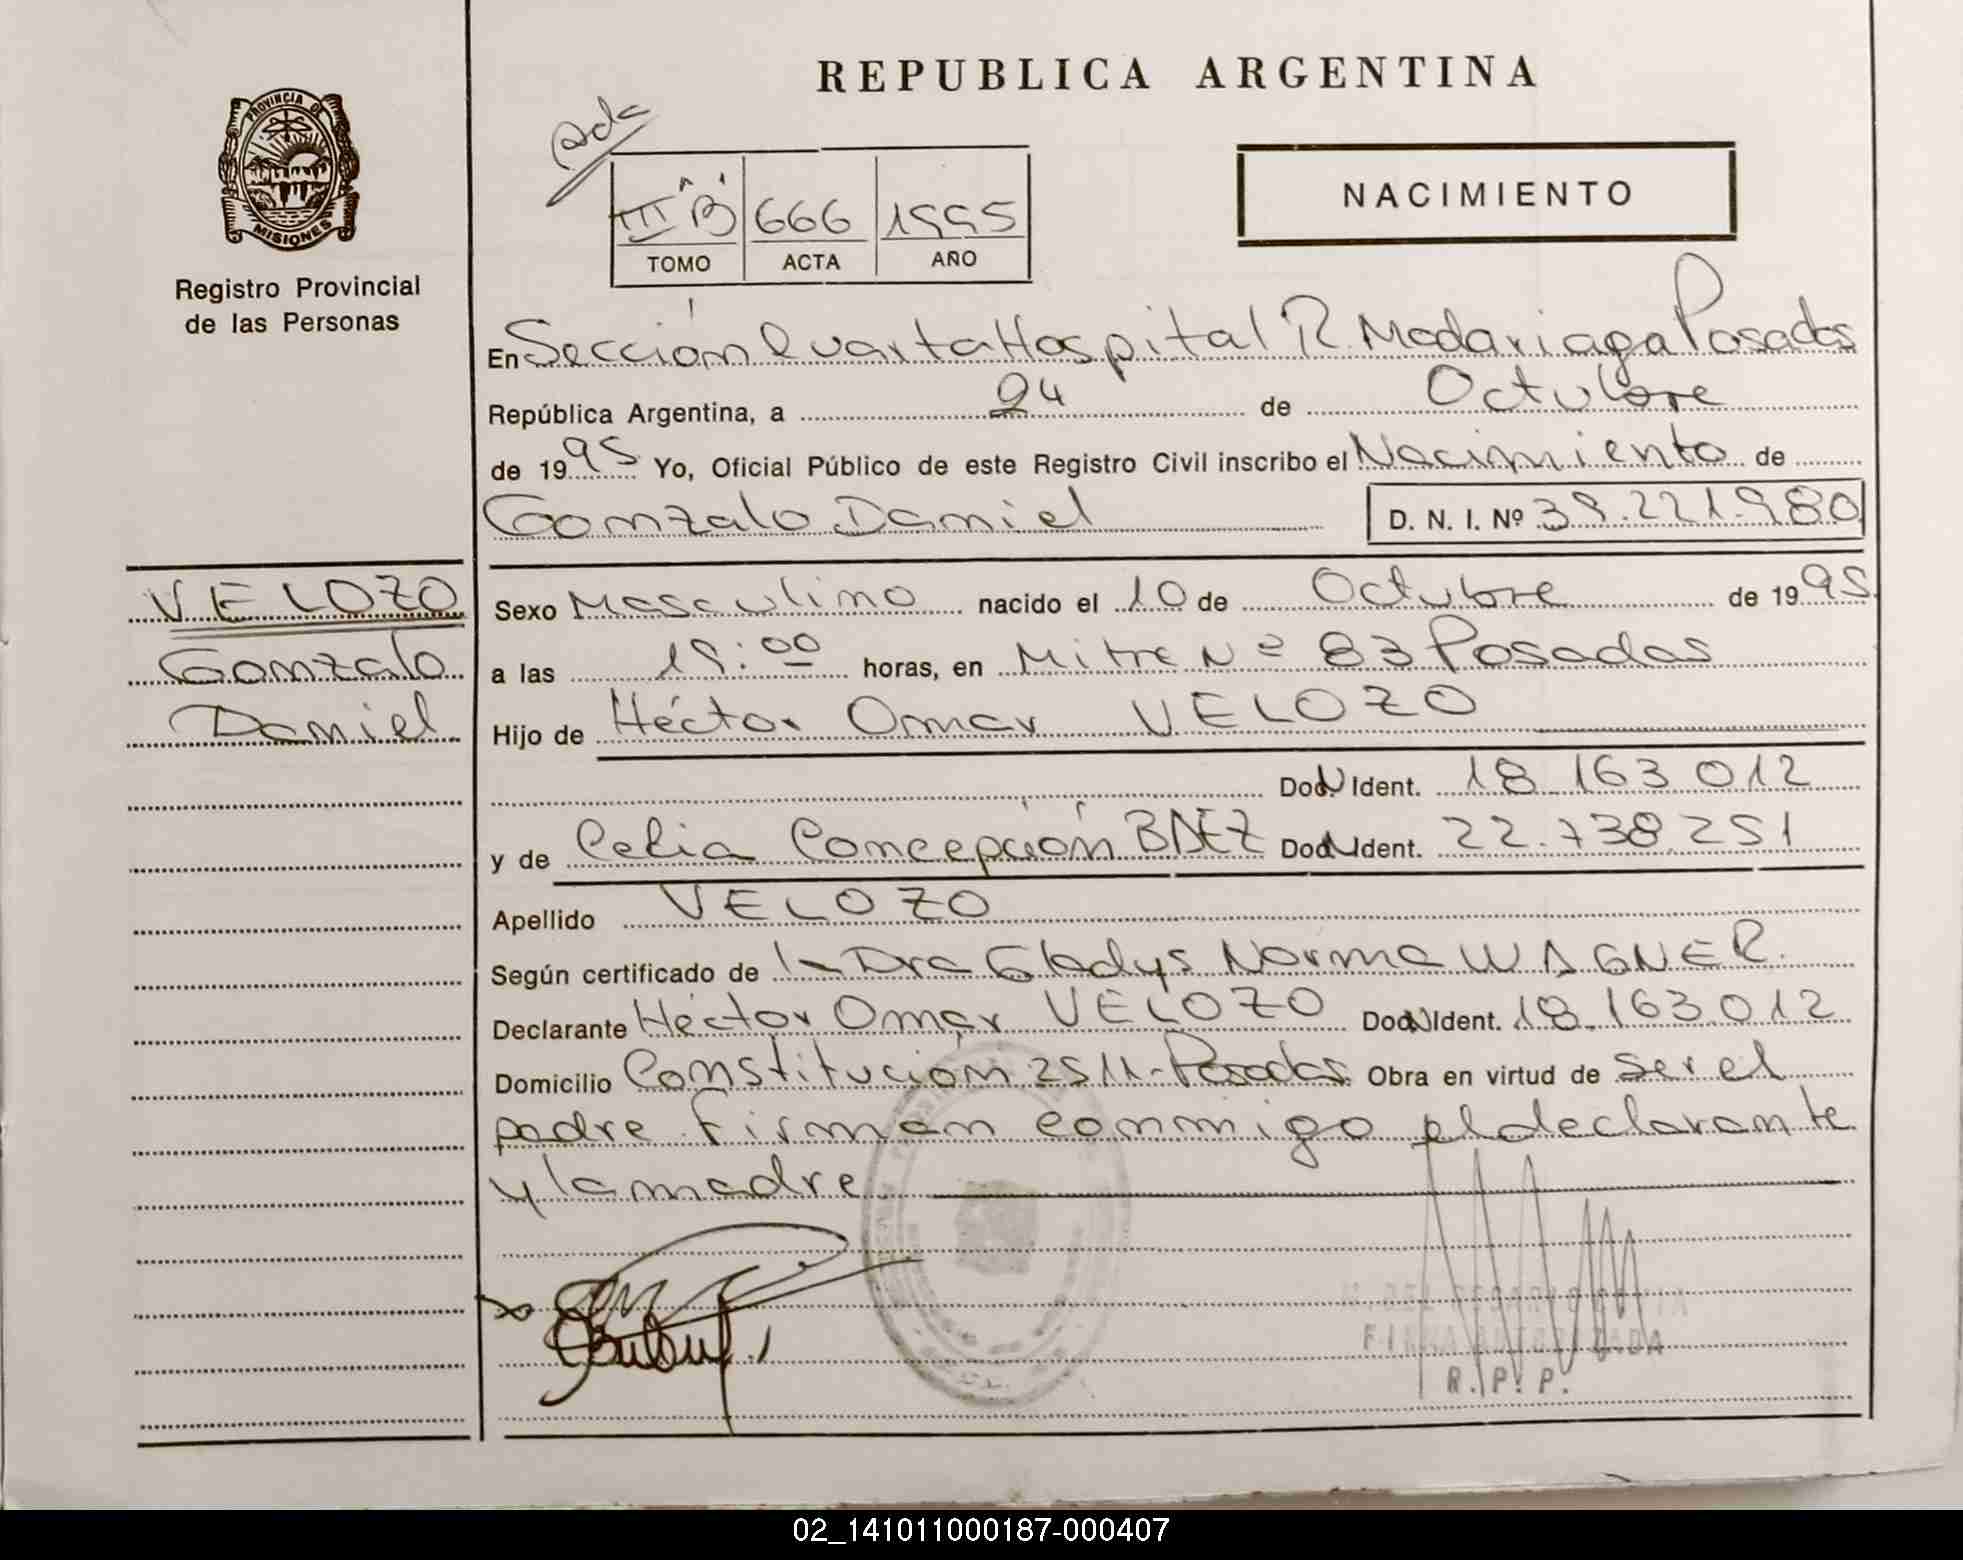 REPUBLICA ARGENTINA
PROVINCIA DE
MISIONES
Registro Provincial
de las Personas
III B
666
1995
TOMO
ACTA
AÑO
NACIMIENTO
En Sección Cuarta Hospital R. Madariaga Posadas
República Argentina, a 24 de Octubre
de 1995 Yo, Oficial Público de este Registro Civil inscribo el Nacimiento de
Gonzalo Daniel D. N. I. Nº 39.221.980
VELOZO
Gonzalo
Daniel
Sexo Masculino nacido el 10 de Octubre de 1995
a las horas, en Mitre Nº 83 Posadas
Hijo de Héctor Omar VELOZO
Ident. 18.163.012
y de Celia Concepción BAEZ Ident. 22.738.251
Apellido VELOZO
Según certificado de la Dra Gladys Norma WAGNER.
Declarante Héctor Omar VELOZO Ident. 18.163.012
Domicilio Constitución 2511-Posadas Obra en virtud de ser el
padre. Firman conmigo el declarante
y la madre.
FIRMA AUTORIZADA
R. P. P.
02_141011000187-000407